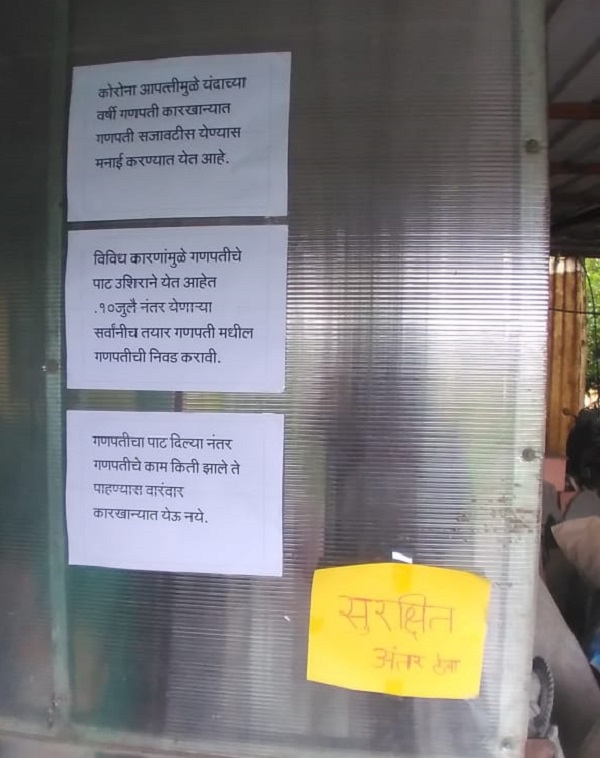 कोरोना आपत्तीमुळे यंदाच्या
वर्षी गणपती कारखान्यात
गणपती सजावटीस येण्यास
मनाई करण्यात येत आहे.
विविध कारणांमुळे गणपतीचे
पाट उशिराने येत आहेत
.१०जुलै नंतर येणाऱ्या
सर्वांनीच तयार गणपती मधील
गणपतीची निवड करावी.
गणपतीचा पाट दिल्या नंतर
गणपतीचे काम किती झाले ते
पाहण्यास वारंवार
कारखान्यात येऊ नये.
सुरक्षित
अंतर ठेवा